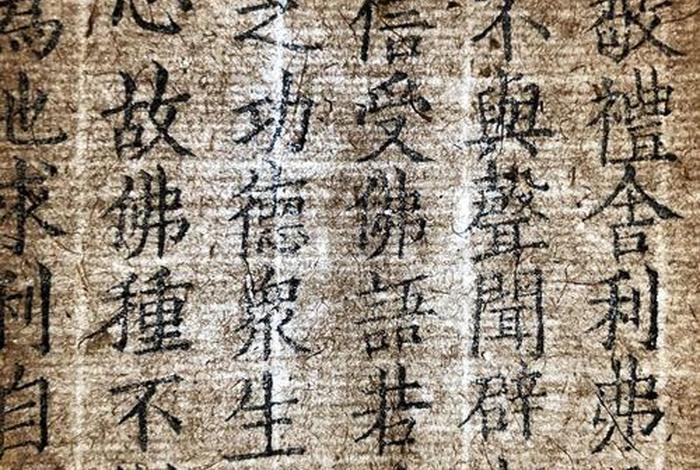 敬禮舍利弗
不與聲聞辟
信受佛語若
之功德衆生
心故佛種不
為也求利自